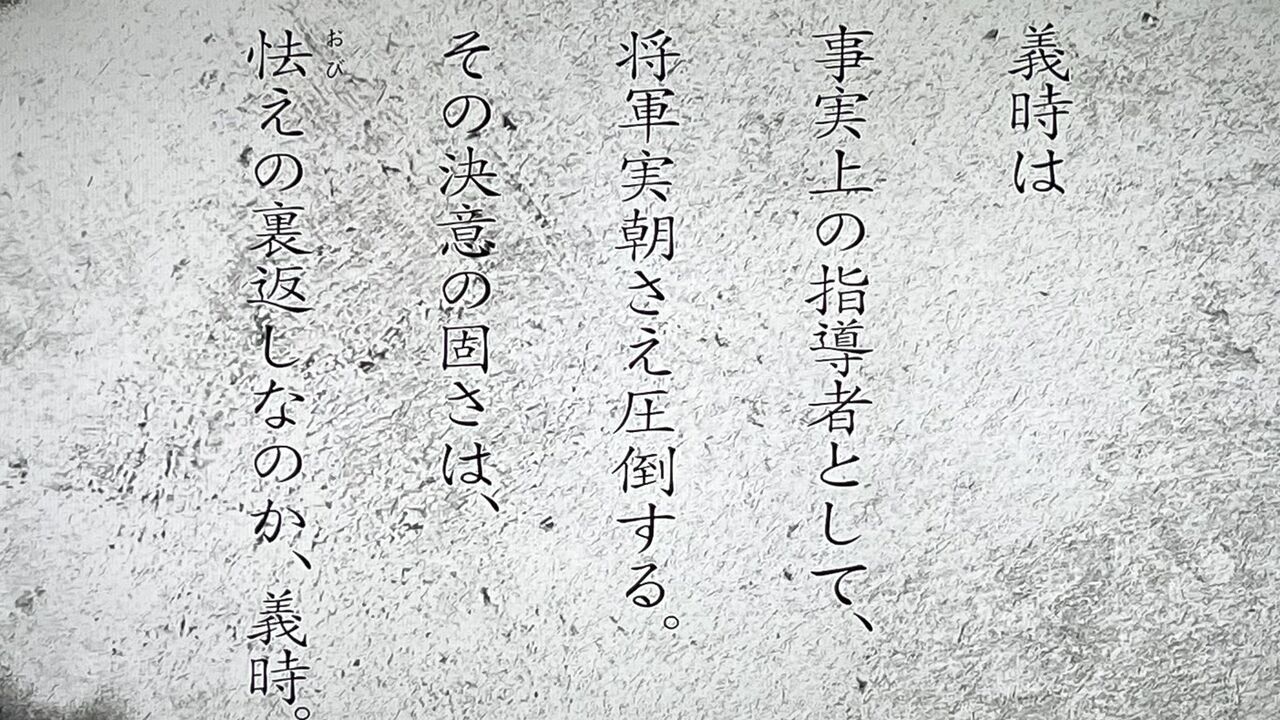 義時は
事実上の指導者として、
将軍実朝さえ圧倒する。
その決意の固さは、
怯えの裏返しなのか、義時。
おび